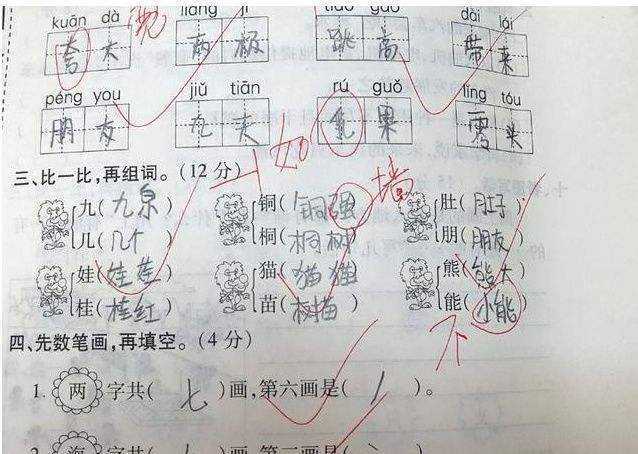 kuān dà liǎng jí tiào gāo dài lái
夸大 两极 跳高 带来
péng you jiǔ tiān rú guǒ líng tóu
朋友 九天 果 零头
如
三、比一比,再组词。(12 分)
九(九泉) 铜(铜强) 墙 肚(肚子)
几(几个) 桐(桐树) 朋(朋友)
娃(娃娃) 猫(猫猫) 熊(熊大)
桂(桂红) 苗(树苗) 能(小能)
不
四、先数笔画,再填空。(4 分)
1. 两 字共( 七 )画,第六画是( 丿 )。
字共( )画,第二画是( 丶 )